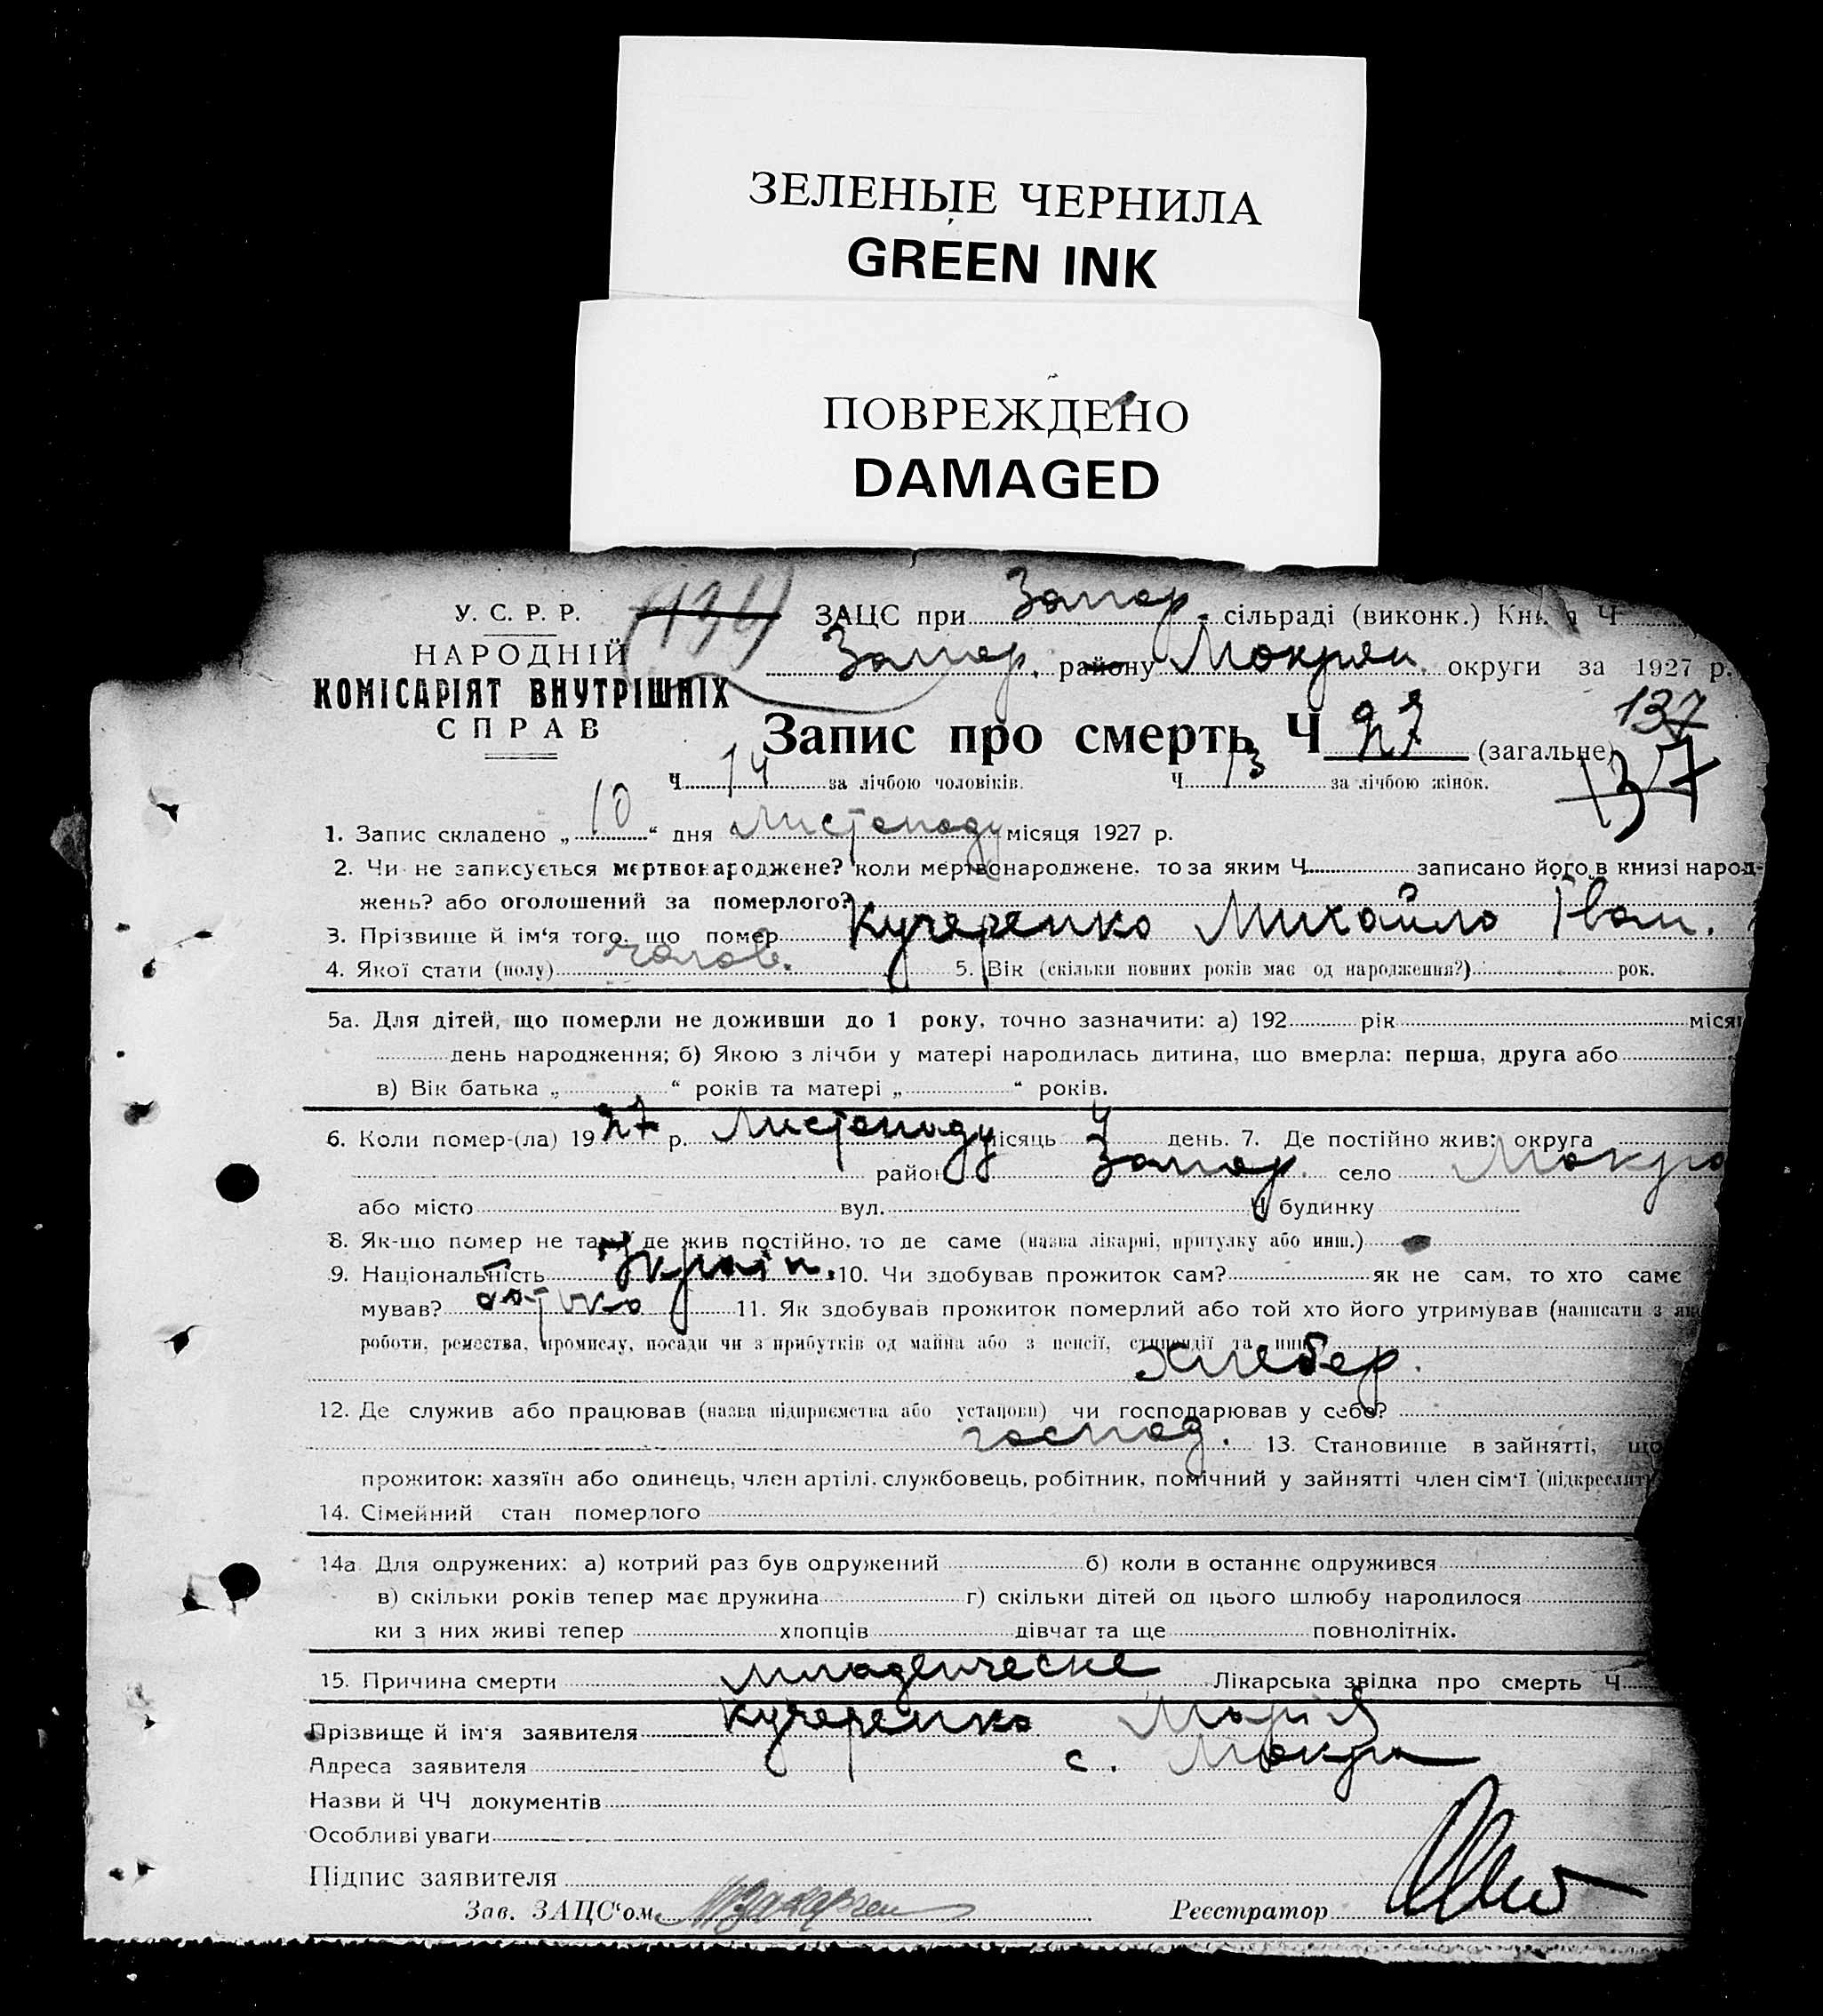 ЗЕЛЕНЫЕ ЧЕРНИЛА
GREEN INK
ПОВРЕЖДЕНО
DAMAGED
У. С. Р. Р.
НАРОДНІЙ
КОМІСАРІЯТ ВНУТРІШНІХ
СПРАВ
ЗАЦС при Запор. сільраді (виконк.) Кни Ч
Запор. району Мокрян. округи за 1927 р.
137
Запис про смерть Ч 27 (загальне)
137
Ч 14 за лічбою чоловіків. Ч 13 за лічбою жінок.
1. Запис складено „ 10 “ дня Листопаду місяця 1927 р.
2. Чи не записується мертвонароджене? коли мертвонароджене, то за яким Ч записано його в книзі народ-
жень? або оголошений за померлого?
3. Прізвище й ім‘я того, що помер Кучеренко Михайло Іван.
4. Якої стати (полу) чолов. 5. Вік (скільки повних років має од народження?) рок.
5а. Для дітей, що померли не доживши до 1 року, точно зазначити: а) 192 рік місяц
день народження; б) Якою з лічби у матері народилась дитина, що вмерла: перша, друга або
в) Вік батька „ “ років та матері „ “ років.
6. Коли помер-(ла) 1927 р. Листопаду місяць 4 день. 7. Де постійно жив: округа
район Запор. село Мокро
або місто вул. Ч будинку
8. Як-що помер не там, де жив постійно, то де саме (назва лікарні, притулку або инш.)
9. Національність Україн. 10. Чи здобував прожиток сам? як не сам, то хто саме
мував? батько 11. Як здобував прожиток померлий або той хто його утримував (написати з як
роботи, ремества, промислу, посади чи з прибутків од майна або з пенсії, стипендії та инш
хлебор.
12. Де служив або працював (назва підприємства або установи) чи господарював у себе?
господ. 13. Становище в зайнятті, що
прожиток: хазяїн або одинець, член артілі, службовець, робітник, помічний у зайнятті член сім‘ї (підкреслити
14. Сімейний стан померлого
14а Для одружених: а) котрий раз був одружений б) коли в останнє одружився
в) скільки років тепер має дружина г) скільки дітей од цього шлюбу народилося
ки з них живі тепер хлопців дівчат та ще повнолітніх.
15. Причина смерти младенческе Лікарська звідка про смерть Ч
Прізвище й ім‘я заявителя Кучеренко Марія
Адреса заявителя с. Мокра
Назви й ЧЧ документів
Особливі уваги
Підпис заявителя
Зав. ЗАЦС‘ом Реєстратор